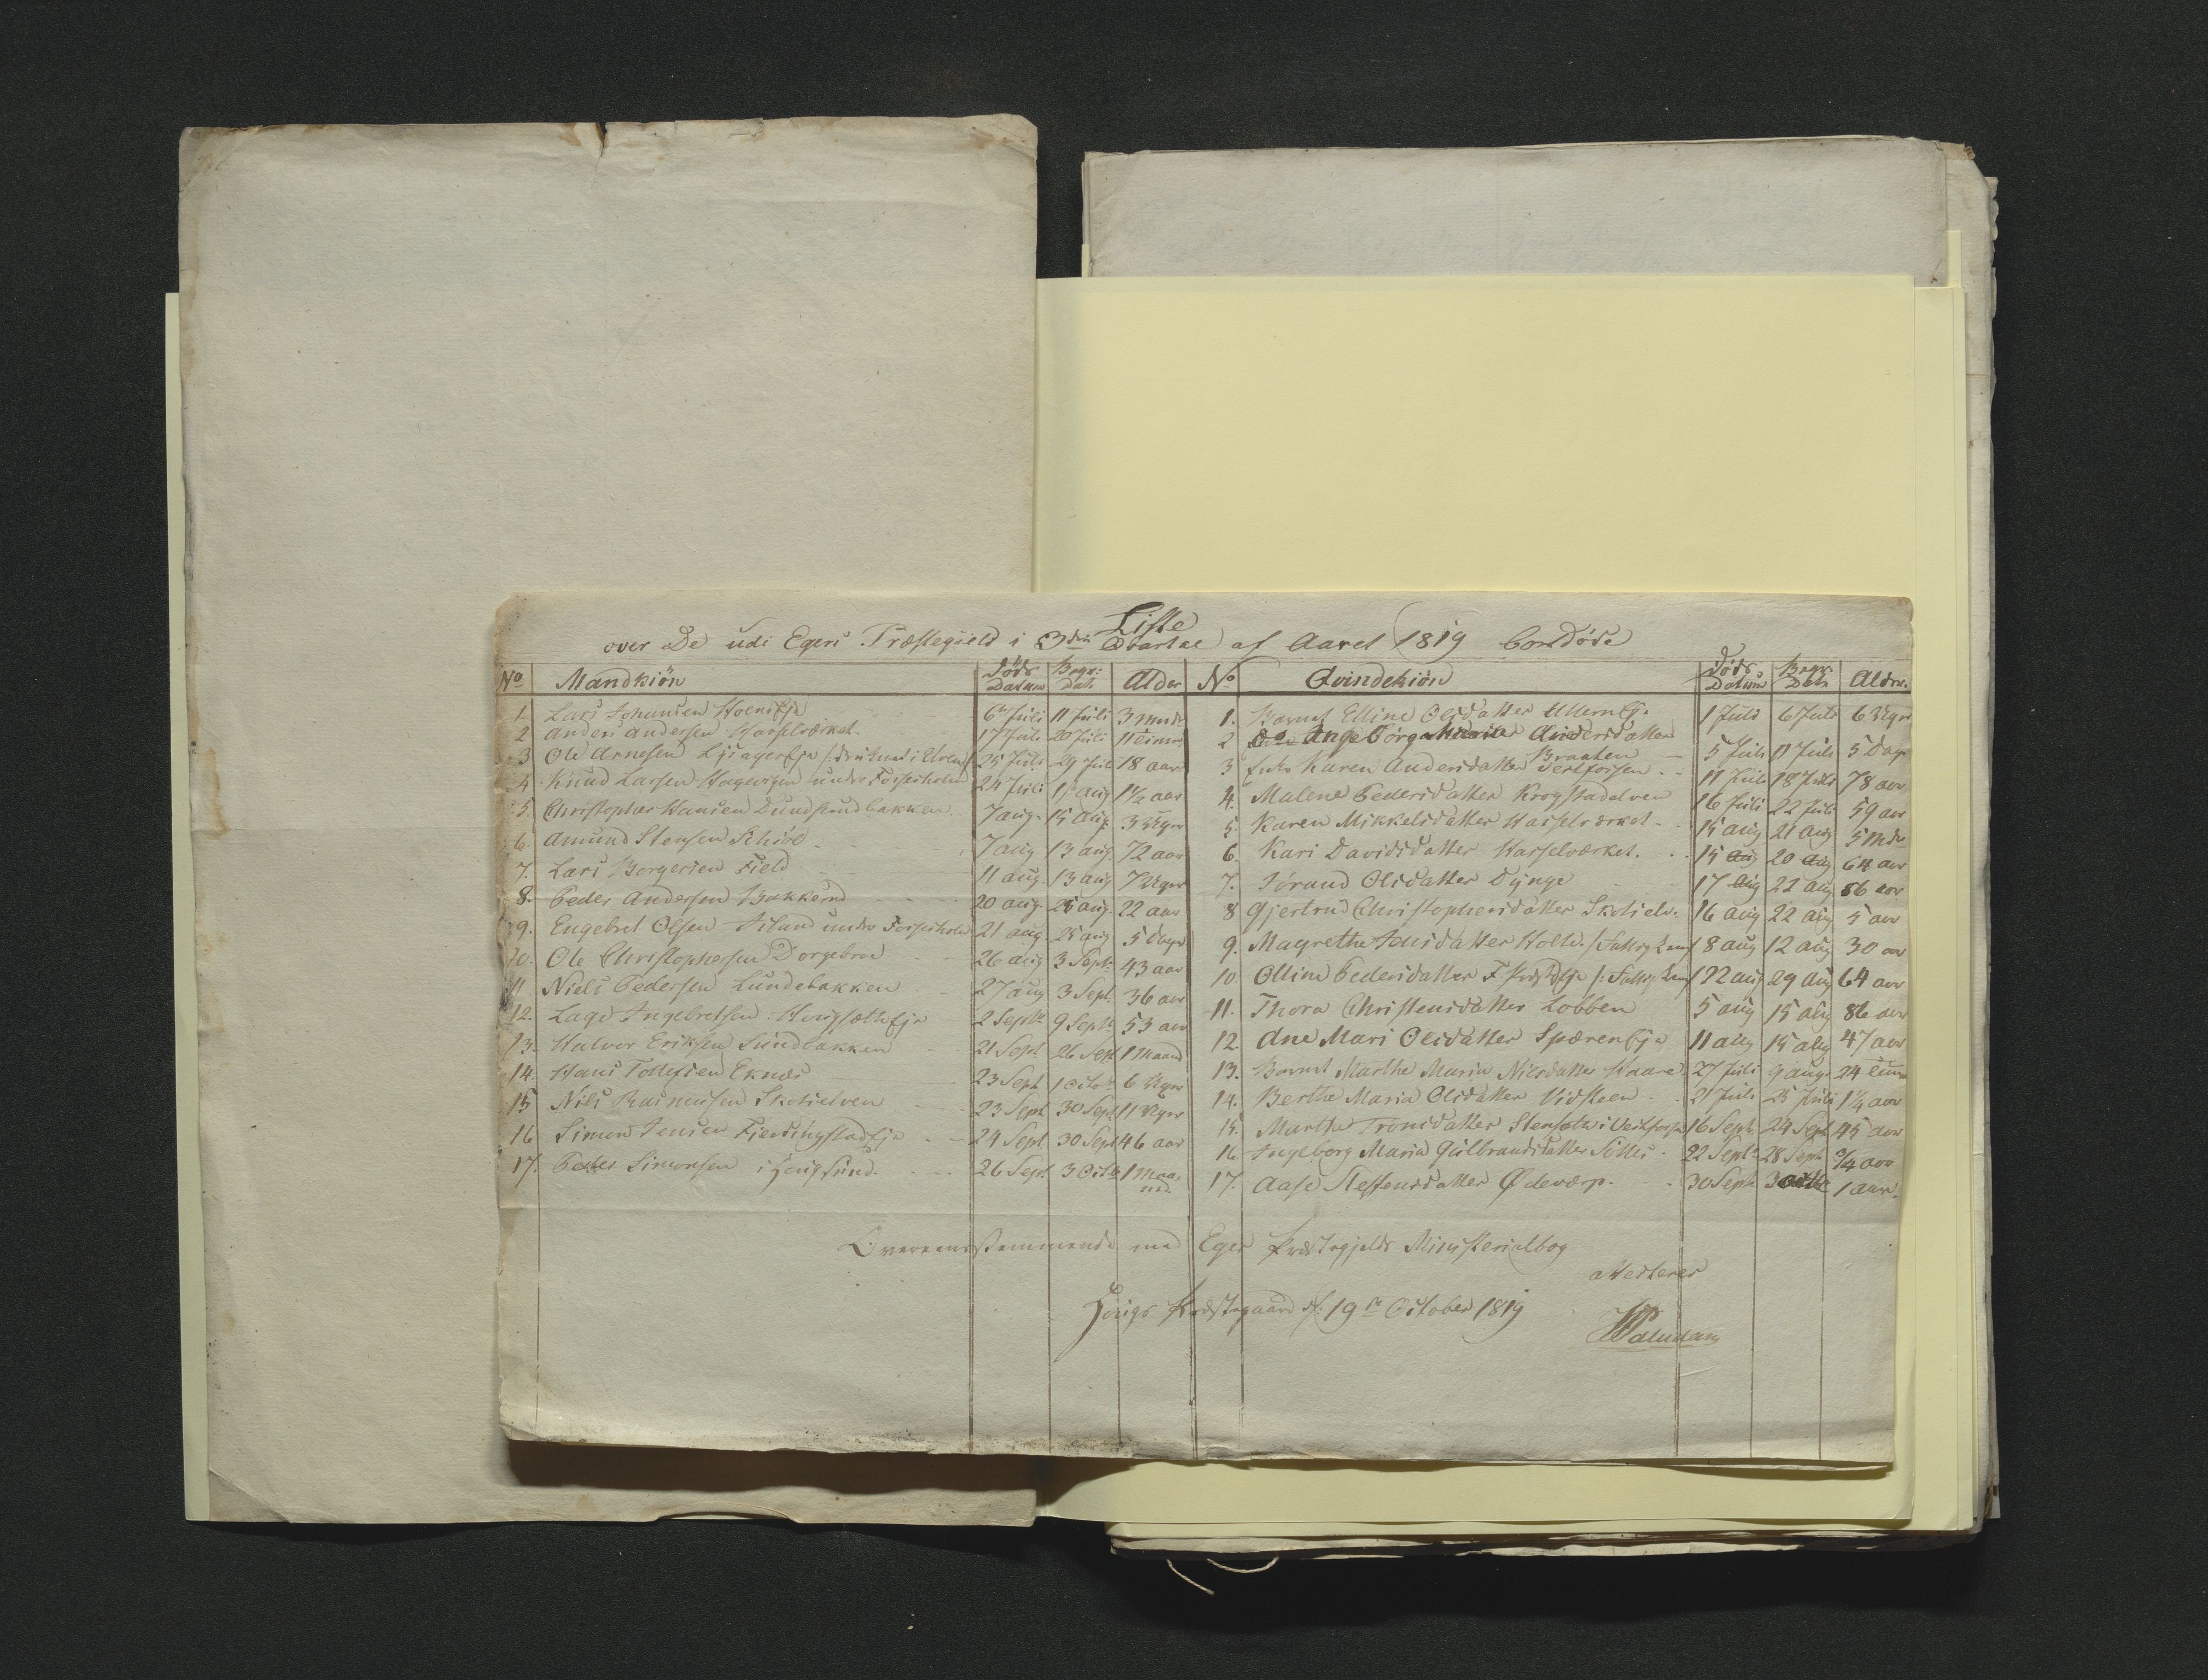 Liste
over De udi Egers Præstegield i 3die Qvartal af Aaret 1819 bortdöde
No Mandkiön Döds Datum Begr: Dat: Alder No Qvindekiön Döds Datum Begr: Dat: Alder
1. Lars Johansen Hoenseje 6te Juli 11 Juli 3 mndr
2 Anders Andersen Hasselværket 17 Juli 20 Juli 11 timer
3 Ole Arnesen 25 Juli 29 Juli 18 aar
4 Knud Larsen Hagevigen under Fossesholm 24 Juli 1 aug 1½ aar
5. Christopher Hansen bakken 7 aug. 15 Aug 3 Uger
6. Amund Stensen 7 aug 13 aug. 72 aar
7. Lars Borgersen Field 11 aug. 13 aug 7 Uger
8. Peder Andersen Bakkerud 20 aug. 25 aug. 22 aar
9. Engebret Olsen under Fossesholm 21 aug. 25 aug 5 dage
10. Ole Christophersen Dorgebroe 26 aug 3 Sept: 43 aar
11 Niels Pedersen Lundebakken 27 aug 3 Sept. 36 aar
12. Lage Ingebretsen 2 Septb 9 Septb 53 aar
13. Halvor Eriksen Sundbakken 21 Sept 26 Sept 1 Maaned
14. Hans Tollefsen Eknæs 23 Sept 1 Octob 6 Uger
15 Nils Rasmusen Skotselven 23 Sept 30 Sept 11 Uger
16 Simon Jensen Fierdingstadeje 24 Sept 30 Sept 46 aar
17. Peder Simonsen i Hougsund. 26 Sept. 3 Octb 1 Maaned
1. Barnet Elline Olsdatter Ullerneje 1 Juli 6 Juli 6 Uger
2 Do Ingeborg Maria Andersdatter Braaten 5 Juli 11 Juli 5 Dage
3 Enke Karen Andersdatter Vestfossen 11 Juli 18 Juli 78 aar
4. Malene Pedersdatter Krogstadelven 16 Juli 22 Juli 59 aar
5. Karen Mikkelsdatter Hasselværket 15 aug 21 aug 5 Mdr
6. Kari Davidsdatter Hasselværket. 15 Aug 20 Aug 64 aar
7. Jörand Olsdatter Dynge 17 Aug 22 aug 86 aar
8 Gjertrud Christophersdatter Skotselv. 16 aug 22 aug 5 aar
9. Magrethe Jensdatter Holte. 8 aug 12 aug 30 aar
10. Olline Pedersdatter 22 aug 29 aug 64 aar
11. Thora Christensdatter Lobben 5 aug 15 aug 86 aar
12. Ane Mari Olsdatter Spæreneje 11 aug 15 aug 47 aar
13. Barnet Marthe Maria Nilsdatter Kaare 27 Juli 9 aug. 24 timer
14. Berthe Maria Olsdatter Vidsteen 21 Juli 25 Juli 1¼ aar
15. Marthe Tronsdatter i Vestfossen 16 Sept. 24 Sept 45 aar
16 Ingeborg Maria Gulbrandsdatter 22 Septb 28 Sept ¾ aar
17. Aase Steffensdatter Ødeværp. 30 Sept 3 Octb 1 aar.
Overeensstemmende med Eger Præstegjelds Ministerialbog
attesteres
Hougs Præstegaard d: 19de October 1819
Paludan